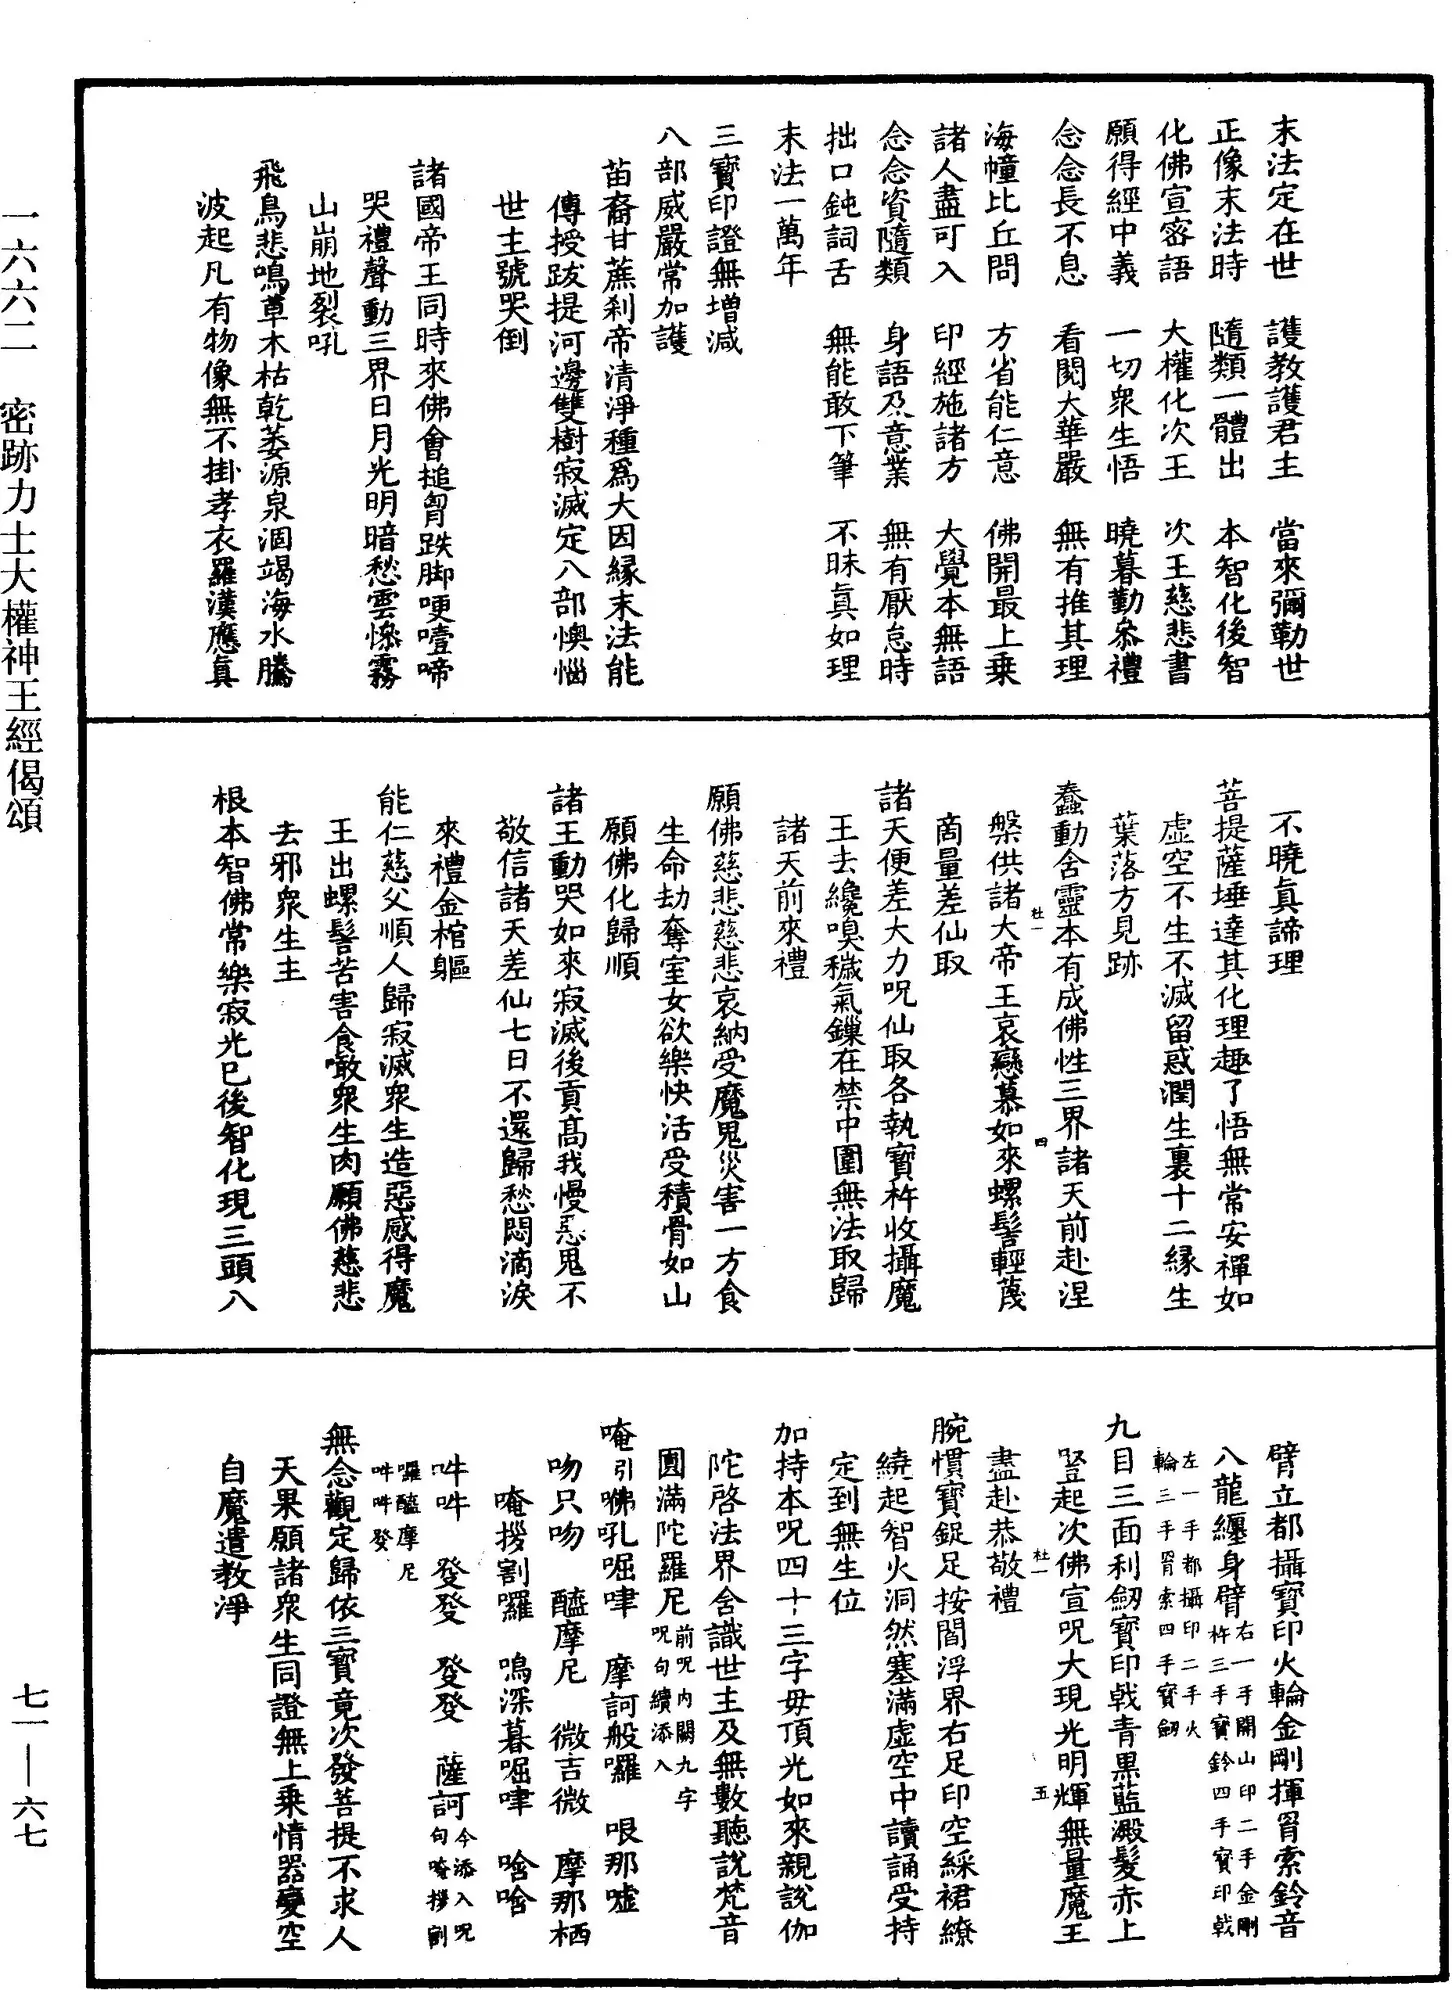 末法定在世　護教護君主　當來彌勒世
正像末法時　隨類一體出　本智化後智
化佛宣密語　大權化次王　次王慈悲書
願得經中義　一切衆生悟　曉暮勤叅禮
念念長不息　看閱大華嚴　無有推其理
海幢比丘問　方省能仁意　佛開最上乗
諸人盡可入　印經施諸方　大覺本無語
念念資隨類　身語及意業　無有厭怠時
拙口鈍詞舌　無能敢下筆　不昧眞如理
末法一萬年
三寶印證無增減
八部威嚴常加護
苗裔甘蔗刹帝清淨種爲大因縁末法能
傳授跋提河邊雙樹寂滅定八部懊惱
世主號哭倒
諸國帝王同時來佛會搥胷跌脚哽噎啼
哭禮聲動三界日月光明暗愁雲慘霧
山崩地裂吼
飛鳥悲鳴草木枯乾萎源泉涸竭海水騰
波起凡有物像無不掛孝衣羅漢應眞
不曉眞諦理
菩提薩埵達其化理趣了悟無常安禪如
虚空不生不滅留惑潤生裏十二縁生
葉落方見跡
蠢動含靈本有成佛性三界諸天前赴涅
槃供諸大帝王哀戀慕如來螺髻輕蔑
商量差仙取
杜一
四
諸天便差大力呪仙取各執寳杵收攝魔
王去纔嗅穢氣鏁在禁中圍無法取歸
諸天前來禮
願佛慈悲慈悲哀納受魔鬼災害一方食
生命劫奪室女欲樂快活受積骨如山
願佛化歸順
諸王動哭如來寂滅後貢髙我慢惡鬼不
敬信諸天差仙七日不還歸愁悶滴淚
來禮金棺軀
能仁慈父順人歸寂滅衆生造惡感得魔
王出螺髻苦害食噉衆生肉願佛慈悲
去邪衆生主
根本智佛常樂寂光巳後智化現三頭八
臂立都攝寶印火輪金剛揮罥索鈴音
八龍纏身臂右一手開山印二手金剛
杵三手寳鈴四手寳印戟
左一手都攝印二手火
輪三手罥索四手寶劒
九目三面利劒寶印戟青黒藍澱髮赤上
豎起次佛宣呪大現光明輝無量魔王
盡赴恭敬禮
杜一
五
腕慣寶鋜足按閻浮界右足印空綵裙繚
繞起智火洞然塞滿虚空中讀誦受持
定到無生位
加持本呪四十三字毋頂光如來親說伽
陀啓法界含識世主及無數聽說梵音
圓滿陀羅尼前呪内闕九字
呪句續添入
唵引嚩𠯆啒㖀　摩訶般囉　哏那嘘
吻只吻　醯摩尼　微吉微　摩那栖
唵拶割囉　嗚深暮啒㖀　唅唅
吽吽　發發　發發　薩訶今添入呪
句唵拶割
囉醯摩尼
吽吽發
無念觀定歸依三寶竟次發菩提不求人
天果願諸衆生同證無上乗情器變空
自魔遣教淨
一六六二　密跡力士大權神王經偈頌
七一—六七